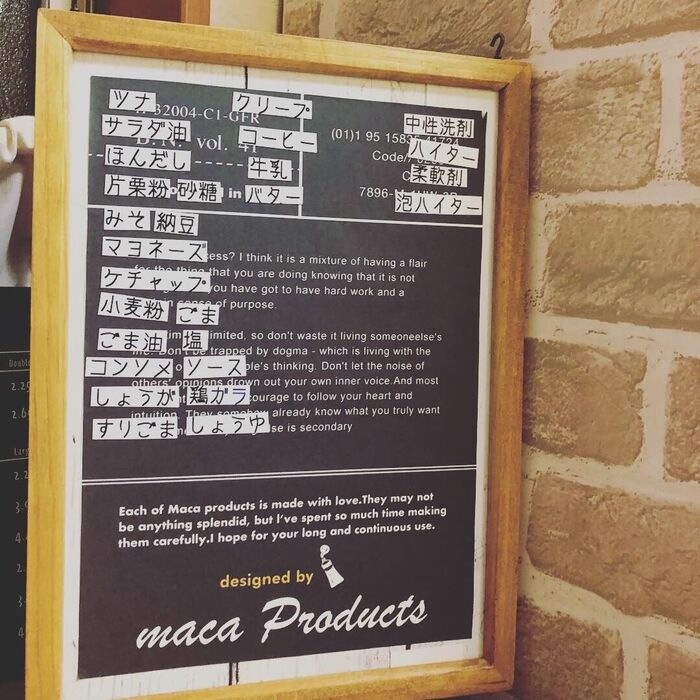 ツナ クリープ
32004-C1-GFR
サラダ油 コーヒー 中性洗剤
vol. 41 (01)1 95 ハイター
ほんだし 牛乳 Code/ 柔軟剤
片栗粉 砂糖 in バター 7896- 泡ハイター
みそ 納豆
マヨネーズ ess? I think it is a mixture of having a flair
for the thing that you are doing knowing that it is not
ケチャップ you have got to have hard work and a
小麦粉 ごま of purpose.
ごま油 塩 limited, so don't waste it living someoneelse's
Don't be trapped by dogma - which is living with the
コンソメ ソース ple's thinking. Don't let the noise of
others' opinions drown out your own inner voice.And most
しょうが 鶏ガラ courage to follow your heart and
intuition. They somehow already know what you truly want
すりごま しょうゆ se is secondary
Each of Maca products is made with love.They may not
be anything splendid, but I've spent so much time making
them carefully.I hope for your long and continuous use.
designed by
maca Products